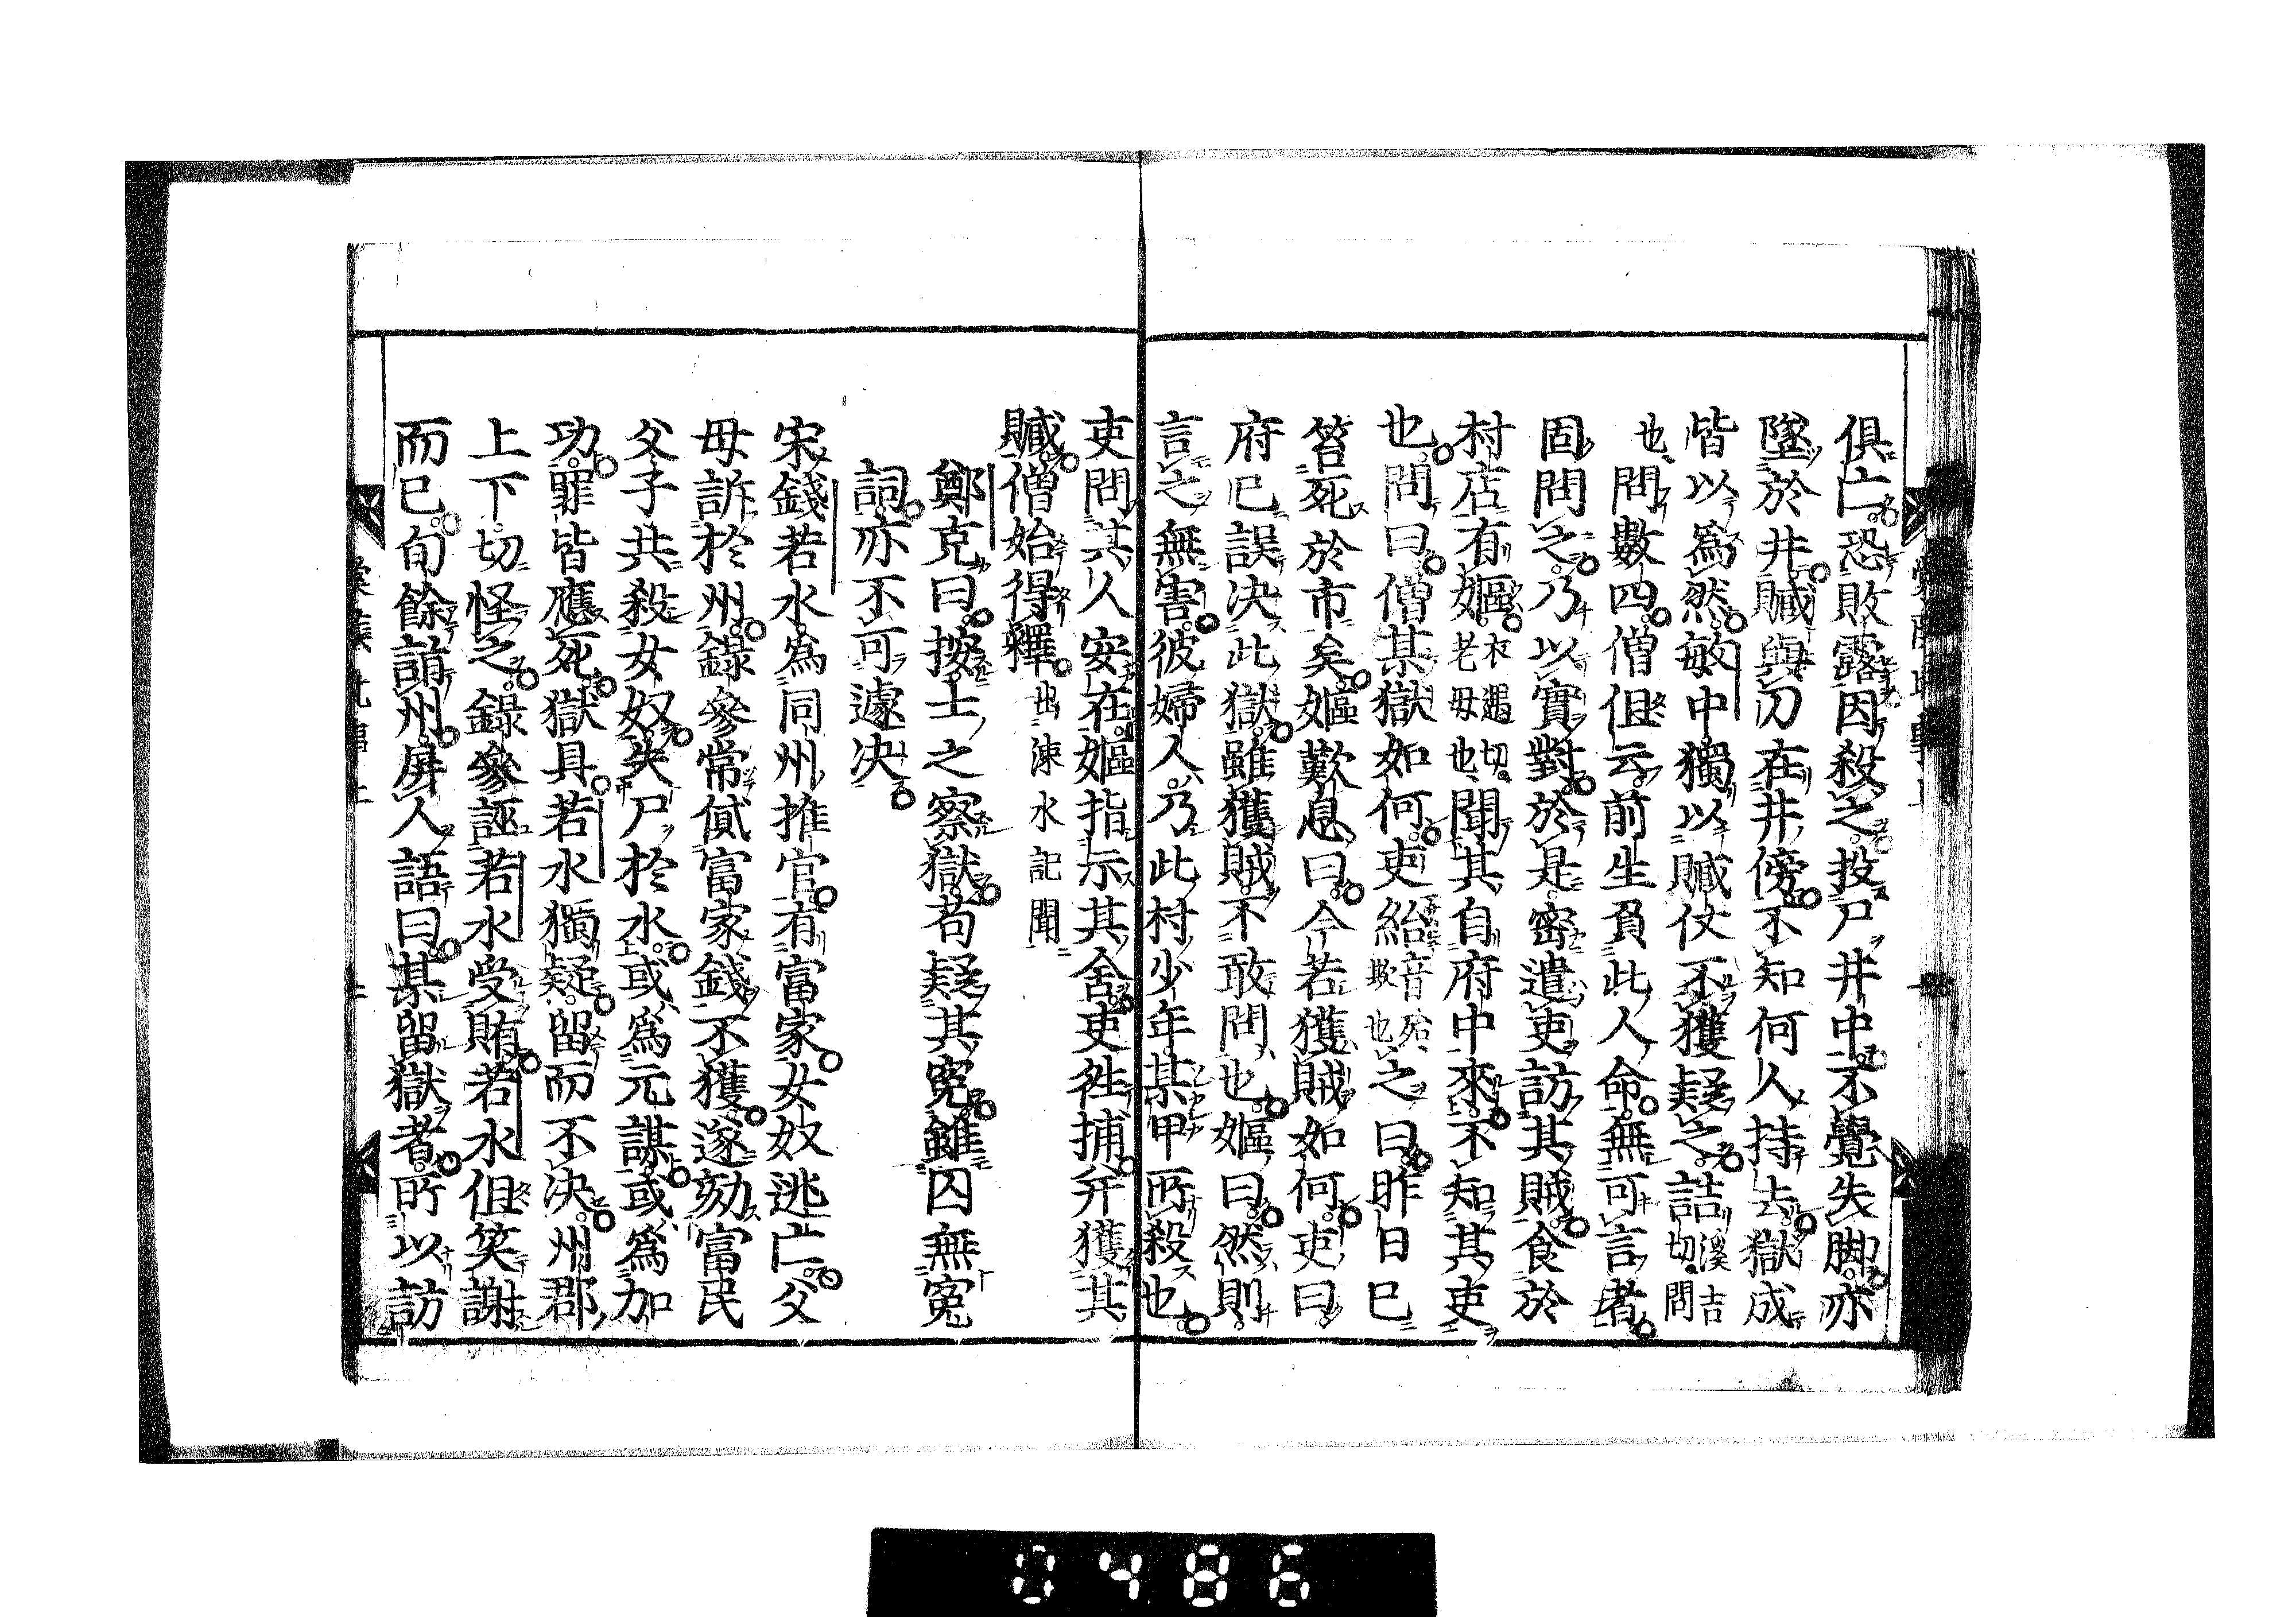 俱亡恐敗露因殺之投尸井中不覺失脚亦
墜於井贓與刃在井傍不知何人持去獄成
皆以爲然敏中獨以贓仗不獲疑之詰溪吉切問
也問數四僧但云前生負此人命無可言者
固問之乃以實對於是密遣吏訪其賊食於
村店有嫗衣遇切老母也聞其自府中來不知其吏
也問曰僧某獄如何吏紿音殆欺也之曰昨日已
笞死於市矣嫗歎息曰今若獲賊如何吏曰
府已誤決此獄雖獲賊不敢問也嫗曰然則
言之無害彼婦人乃此村少年某甲所殺也
吏問其人安在嫗指示其舍吏徃捕并獲其
贓僧始得釋出涑水記聞
鄭克曰按士之察獄苟疑其寃雖囚無寃
詞亦不可遽決
宋錢若水爲同州推官有富家女奴逃亡父
母訴於州錄參常貸富家錢不獲遂劾富民
父子共殺女奴失尸於水或爲元謀或爲加
功罪皆應死獄具若水獨疑留而不決州郡
上下切怪之錄參誣若水受賄若水但笑謝
而已旬餘詣州屏人語曰某留獄者所以訪
0486